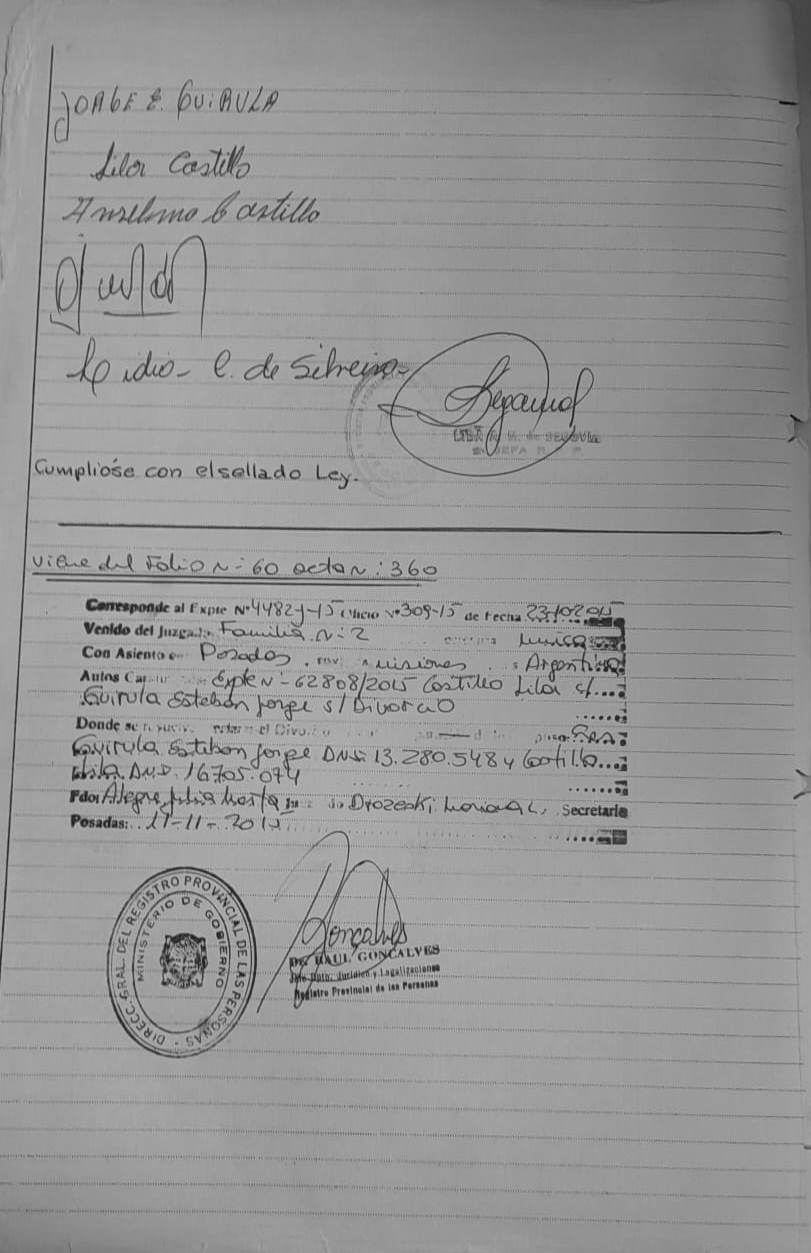 JORGE E. GUIRULA
Lila Castillo
Anselmo Castillo
Lidia C. de Silveira
LIDA A. M. de SEGOVIA
Cumplióse con el sellado Ley.
Viene del Folio N-60 acta N: 360
Corresponde al Expte Nº 4482-J-15 Oficio Nº 309-15 de Fecha 23-10-2015
Venido del Juzgado Familia N: 2
Con Asiento en Posadas, Misiones Argentina
Autos Expte N-62808/2015 Castillo Lila c/
Guirula Esteban Jorge s/Divorcio
Donde se Divorcio
Guirula Esteban Jorge DNI: 13.280.548 y Castillo
Lila D.N.I. 16.705.074
Fdo: Alegre Julia Drozeski Mariana L. Secretaria
Posadas: 17-11-2015
DIRECC. GRAL. DEL REGISTRO PROVINCIAL DE LAS PERSONAS
MINISTERIO DE GOBIERNO
Gonçalves
Dr. RAUL GONCALVES
Jefe Dpto. Jurídico y Legalizaciones
Registro Provincial de las Personas